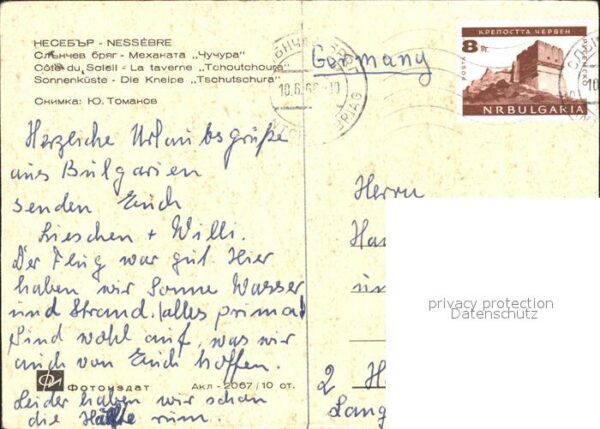 НЕСЕБЪР - NESSÉBRE
Слънчев бряг - Механата „Чучура"
Côte du Soleil - La taverne „Tchoutchoura"
Sonnenküste - Die Kneipe „Tschutschura"
Снимка: Ю. Томанов
Germany
10.6.68.-10
BRIAG
8 ст
КРЕПОСТТА ЧЕРВЕН
ПОЩА
NRBULGARIA
Herzliche Urlaubsgrüße
aus Bulgarien
senden Euch
Lieschen + Willi.
Der Flug war gut. Hier
haben wir Sonne Wasser
und Strand. (alles prima)
Sind wohl auf, was wir
auch von Euch hoffen.
Leider haben wir schon
die Hälfte rum.
Фотоиздат
Акл - 2067/10 от.
Herrn
Ha
un
2 H
Lang
privacy protection
Datenschutz